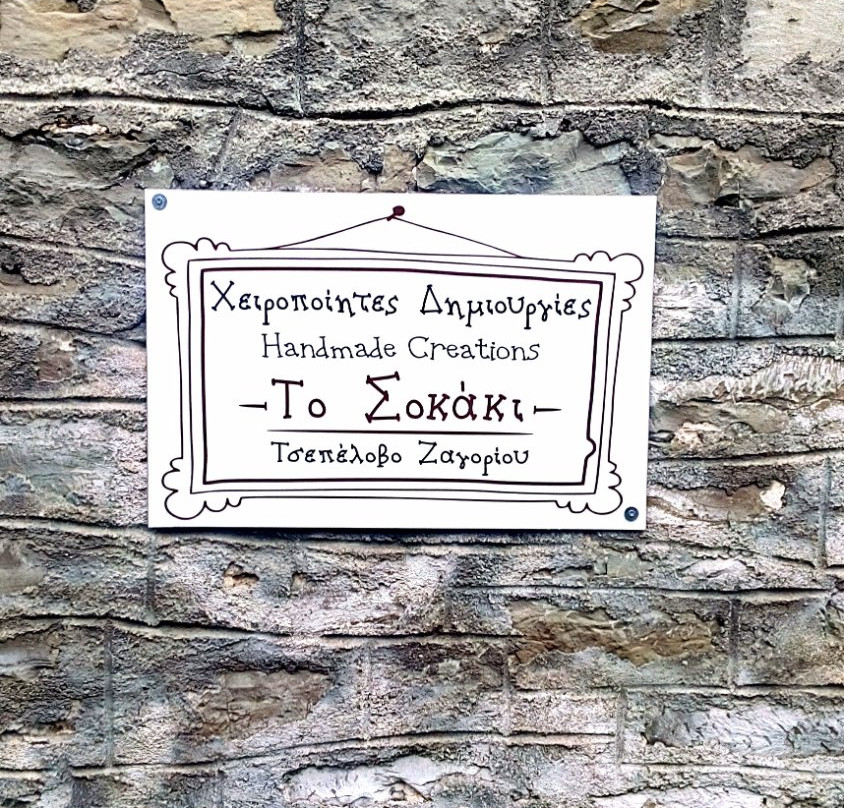 Χειροποίητες Δημιουργίες
Handmade Creations
Το Σοκάκι
Τσεπέλοβο Ζαγορίου